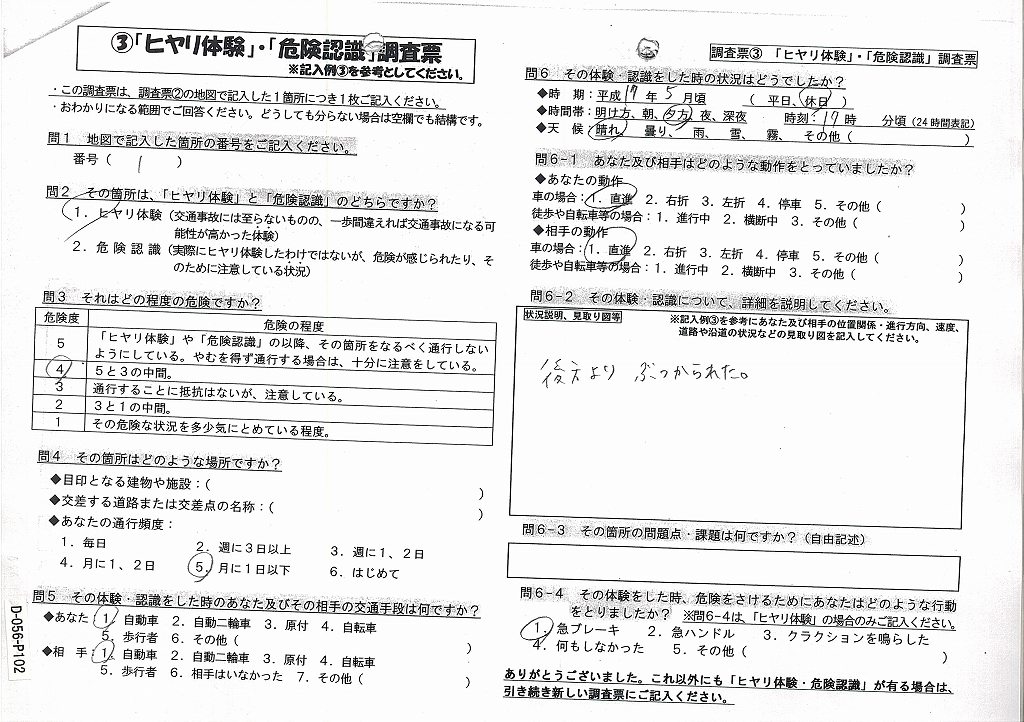 ③「ヒヤリ体験」・「危険認識」調査票
※記入例③を参考としてください。
・この調査票は、調査票②の地図で記入した1箇所につき1枚ご記入ください。
・おわかりになる範囲でご回答ください。どうしても分らない場合は空欄でも結構です。
問1 地図で記入した箇所の番号をご記入ください。
番号( 1 )
問2 その箇所は、「ヒヤリ体験」と「危険認識」のどちらですか?
1. ヒヤリ体験(交通事故には至らないものの、一歩間違えれば交通事故になる可
能性が高かった体験)
2. 危険認識(実際にヒヤリ体験したわけではないが、危険が感じられたり、そ
のために注意している状況)
問3 それはどの程度の危険ですか?
危険度 危険の程度
5 「ヒヤリ体験」や「危険認識」の以降、その箇所をなるべく通行しない
ようにしている。やむを得ず通行する場合は、十分に注意をしている。
4 5と3の中間。
3 通行することに抵抗はないが、注意している。
2 3と1の中間。
1 その危険な状況を多少気にとめている程度。
問4 その箇所はどのような場所ですか?
◆目印となる建物や施設:( )
◆交差する道路または交差点の名称:( )
◆あなたの通行頻度:
1. 毎日 2. 週に3日以上 3. 週に1、2日
4. 月に1、2日 5. 月に1日以下 6. はじめて
問5 その体験・認識をした時のあなた及びその相手の交通手段は何ですか?
◆あなた:1. 自動車 2. 自動二輪車 3. 原付 4. 自転車
5. 歩行者 6. その他( )
◆相 手:1. 自動車 2. 自動二輪車 3. 原付 4. 自転車
5. 歩行者 6. 相手はいなかった 7. その他( )
D-056-P102
調査票③ 「ヒヤリ体験」・「危険認識」調査票
問6 その体験・認識をした時の状況はどうでしたか?
◆時 期:平成 17 年 5 月頃 ( 平日、休日 )
◆時間帯:明け方、朝、夕方、夜、深夜 時刻:17時 分頃(24時間表記)
◆天 候:晴れ、曇り、 雨、 雪、 霧、 その他( )
問6-1 あなた及び相手はどのような動作をとっていましたか?
◆あなたの動作
車の場合:1. 直進 2. 右折 3. 左折 4. 停車 5. その他( )
徒歩や自転車等の場合:1. 進行中 2. 横断中 3. その他( )
◆相手の動作
車の場合:1. 直進 2. 右折 3. 左折 4. 停車 5. その他( )
徒歩や自転車等の場合:1. 進行中 2. 横断中 3. その他( )
問6-2 その体験・認識について、詳細を説明してください。
状況説明、見取り図等 ※記入例③を参考にあなた及び相手の位置関係・進行方向、速度、
道路や沿道の状況などの見取り図を記入してください。
後方より ぶつかられた。
問6-3 その箇所の問題点・課題は何ですか?(自由記述)
問6-4 その体験をした時、危険をさけるためにあなたはどのような行動
をとりましたか? ※問6-4は、「ヒヤリ体験」の場合のみご記入ください。
1. 急ブレーキ 2. 急ハンドル 3. クラクションを鳴らした
4. 何もしなかった 5. その他( )
ありがとうございました。これ以外にも「ヒヤリ体験・危険認識」が有る場合は、
引き続き新しい調査票にご記入ください。